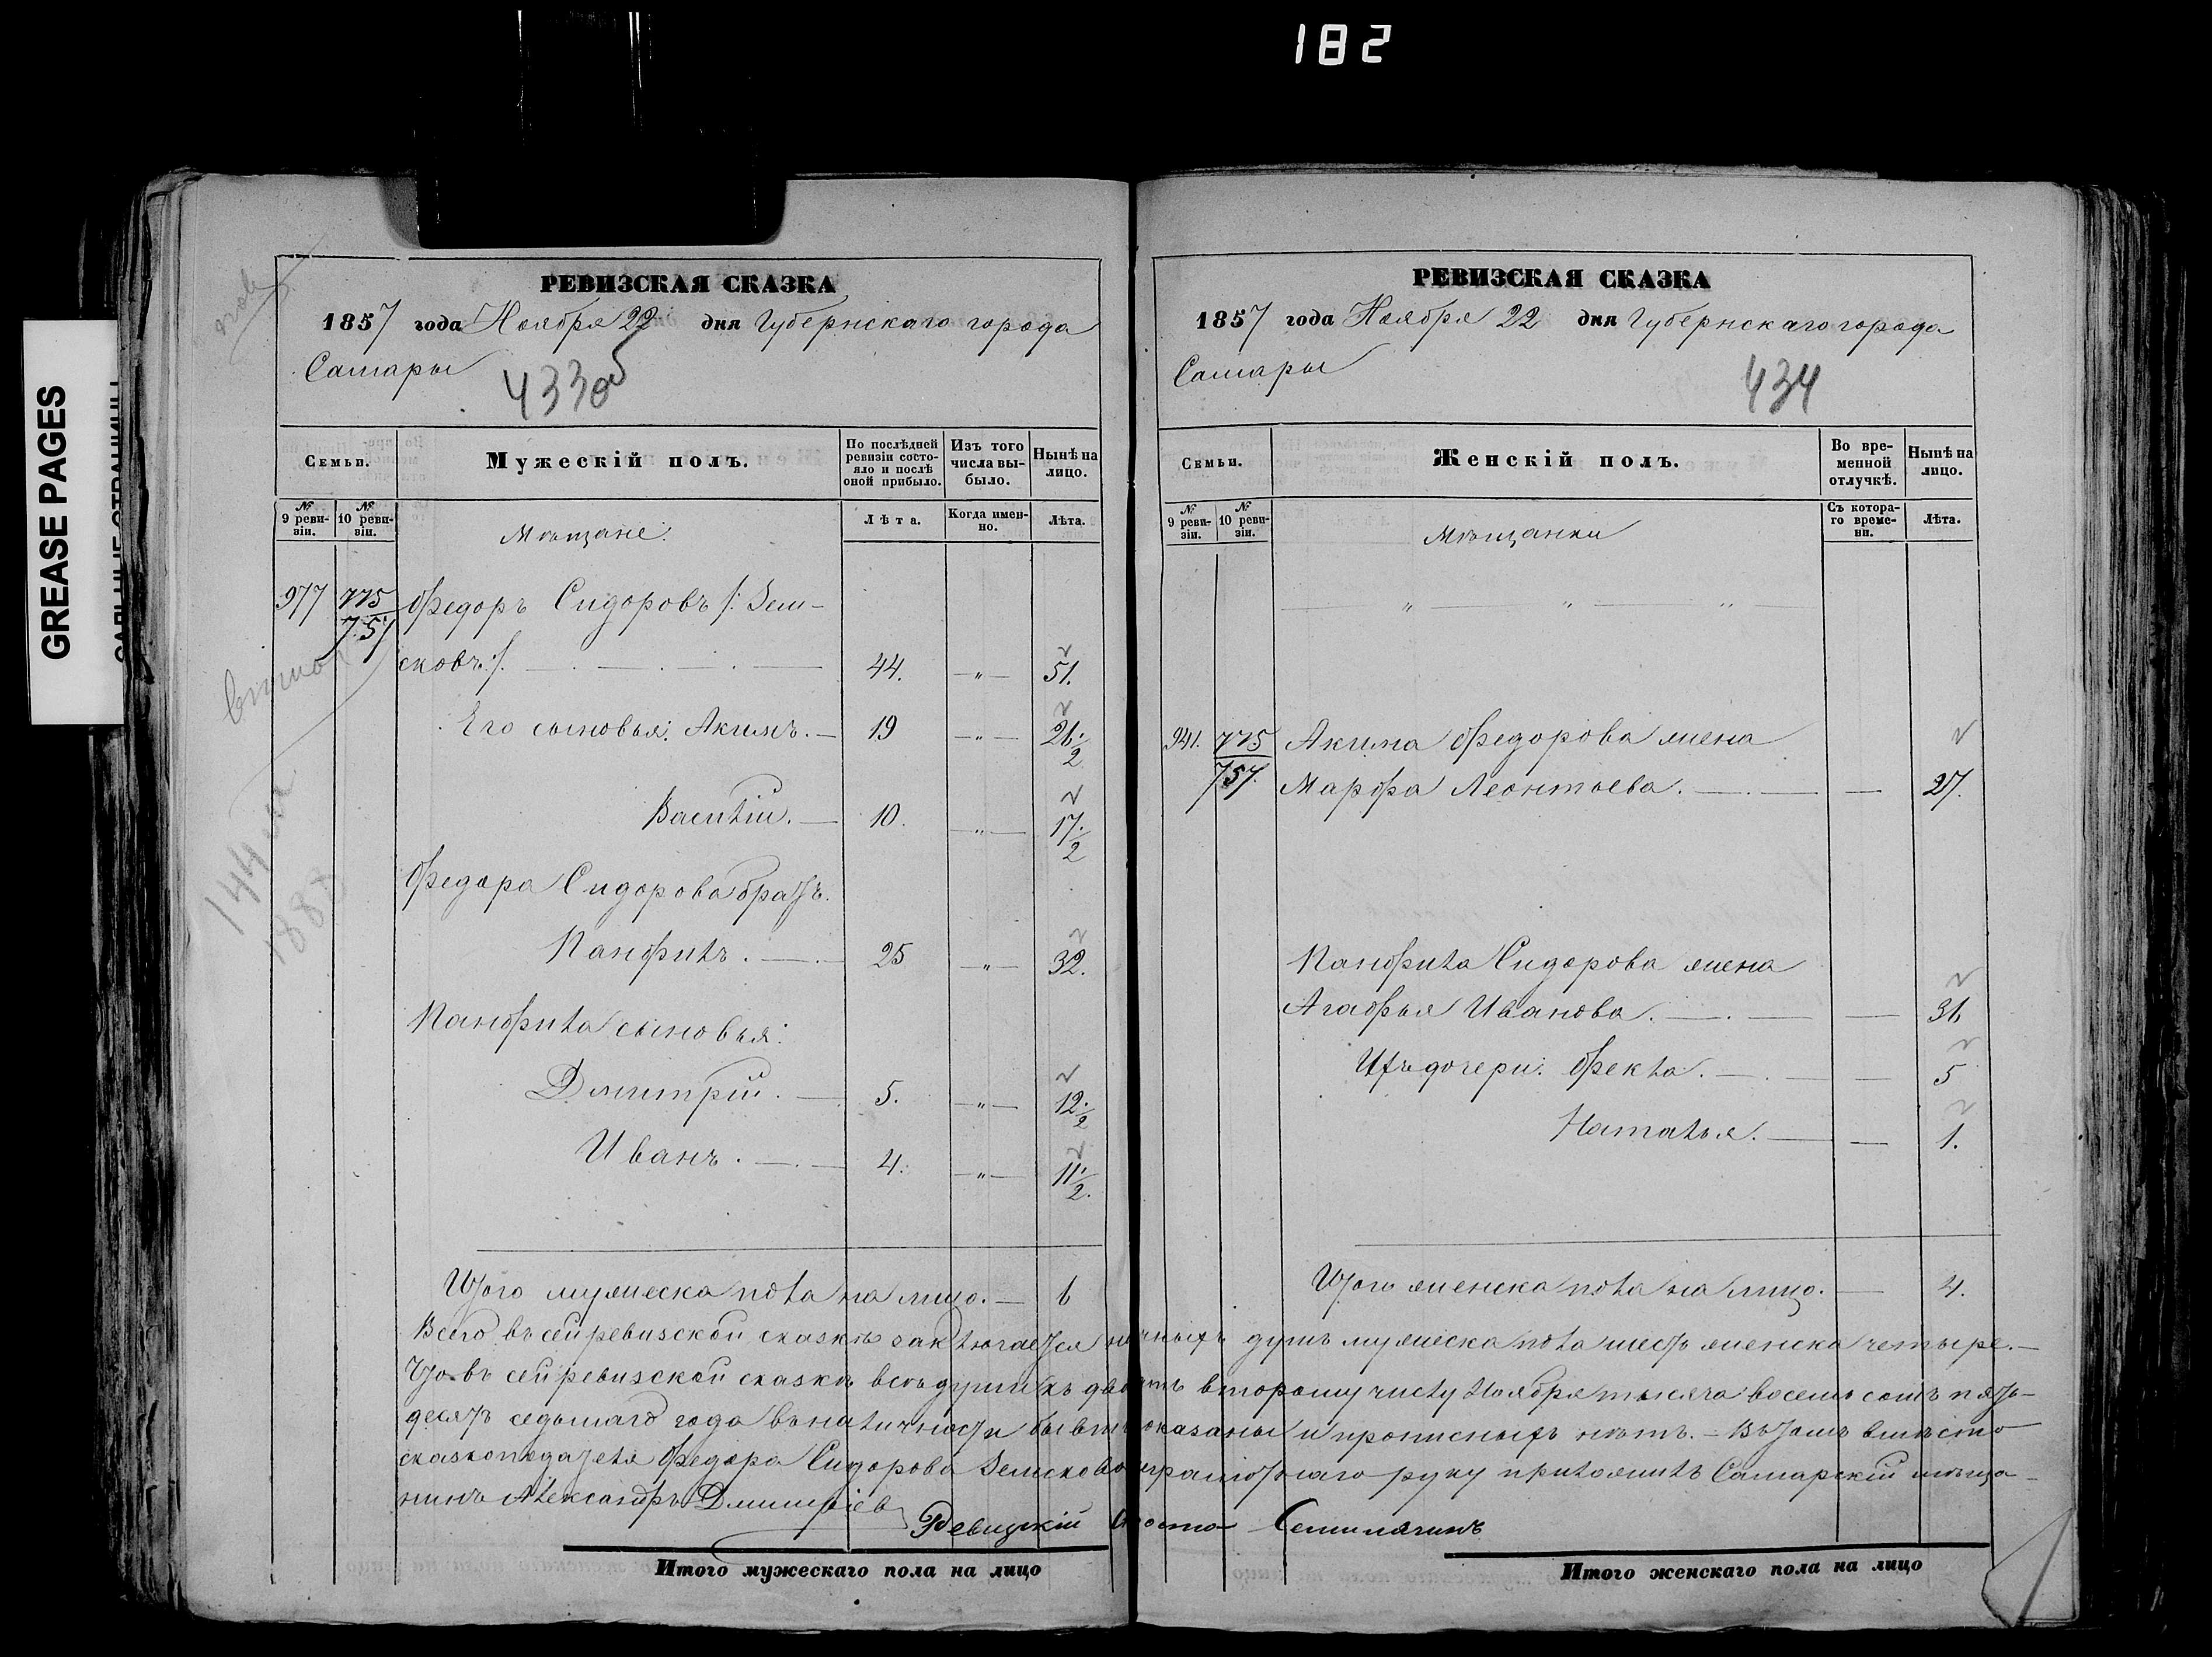 182
GREASE PAGES
РЕВИЗСКАЯ СКАЗКА
1857 года Ноября 22 дня Губернскаго города
Самары
433об
Семьи.
Мужескій полъ.
По послѣдней ревизіи состояло и послѣ оной прибыло.
Изъ того числа выбыло.
Нынѣ на лицо.
№ 9 ревизіи.
№ 10 ревизіи.
Мѣщане.
Лѣта.
Когда именно.
Лѣта.
977 775 Федоръ Сидоровъ /: Зем-
757 сковъ :/. 44. „ 51.
Его сыновья: Акимъ. 19 „ 26. 2
Василій. 10. „ 17. 2
Федора Сидорова братъ.
Панфилъ. 25 „ 32.
Панфила сыновья:
Дмитрій. 5. „ 12. 2
Иванъ. 4. „ 11. 2.
Итого мужеска пола на лицо. 6
РЕВИЗСКАЯ СКАЗКА
1857 года Ноября 22 дня Губернскаго города
Самары
434
Семьи.
Женскій полъ.
Во временной отлучкѣ.
Нынѣ на лицо.
№ 9 ревизіи.
№ 10 ревизіи.
Мѣщанки
Съ котораго времени.
Лѣта.
„ „ „
941. 775 Акима Федорова жена
757. Марфа Леонтьева. 27.
Панфила Сидорова жена
Агафья Иванова. 31
Ихъ дочери: Фекла. 5
Наталья. 1.
Итого женска пола на лицо. 4.
Всего въ сей ревизской сказкѣ заключается наличныхъ душъ мужеска пола шесть женска четыре.
Что въ сей ревизской сказкѣ всѣ души къ двадцать второму числу Ноября тысяча восемь сотъ пять-
десятъ седьмаго года въ наличности бывшіе показаны и прописныхъ нѣтъ. – Въ томъ вмѣсто
сказкоподателя Федора Сидорова Земскова неграмотнаго руку приложилъ Самарскій мѣща-
нинъ Александръ Дмитріев
Ревизскій
Итого мужескаго пола на лицо
Итого женскаго пола на лицо